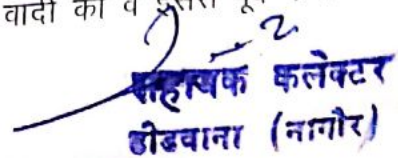 वादी का व दूसरा
सहायक कलेक्टर
डीडवाना (नागौर)